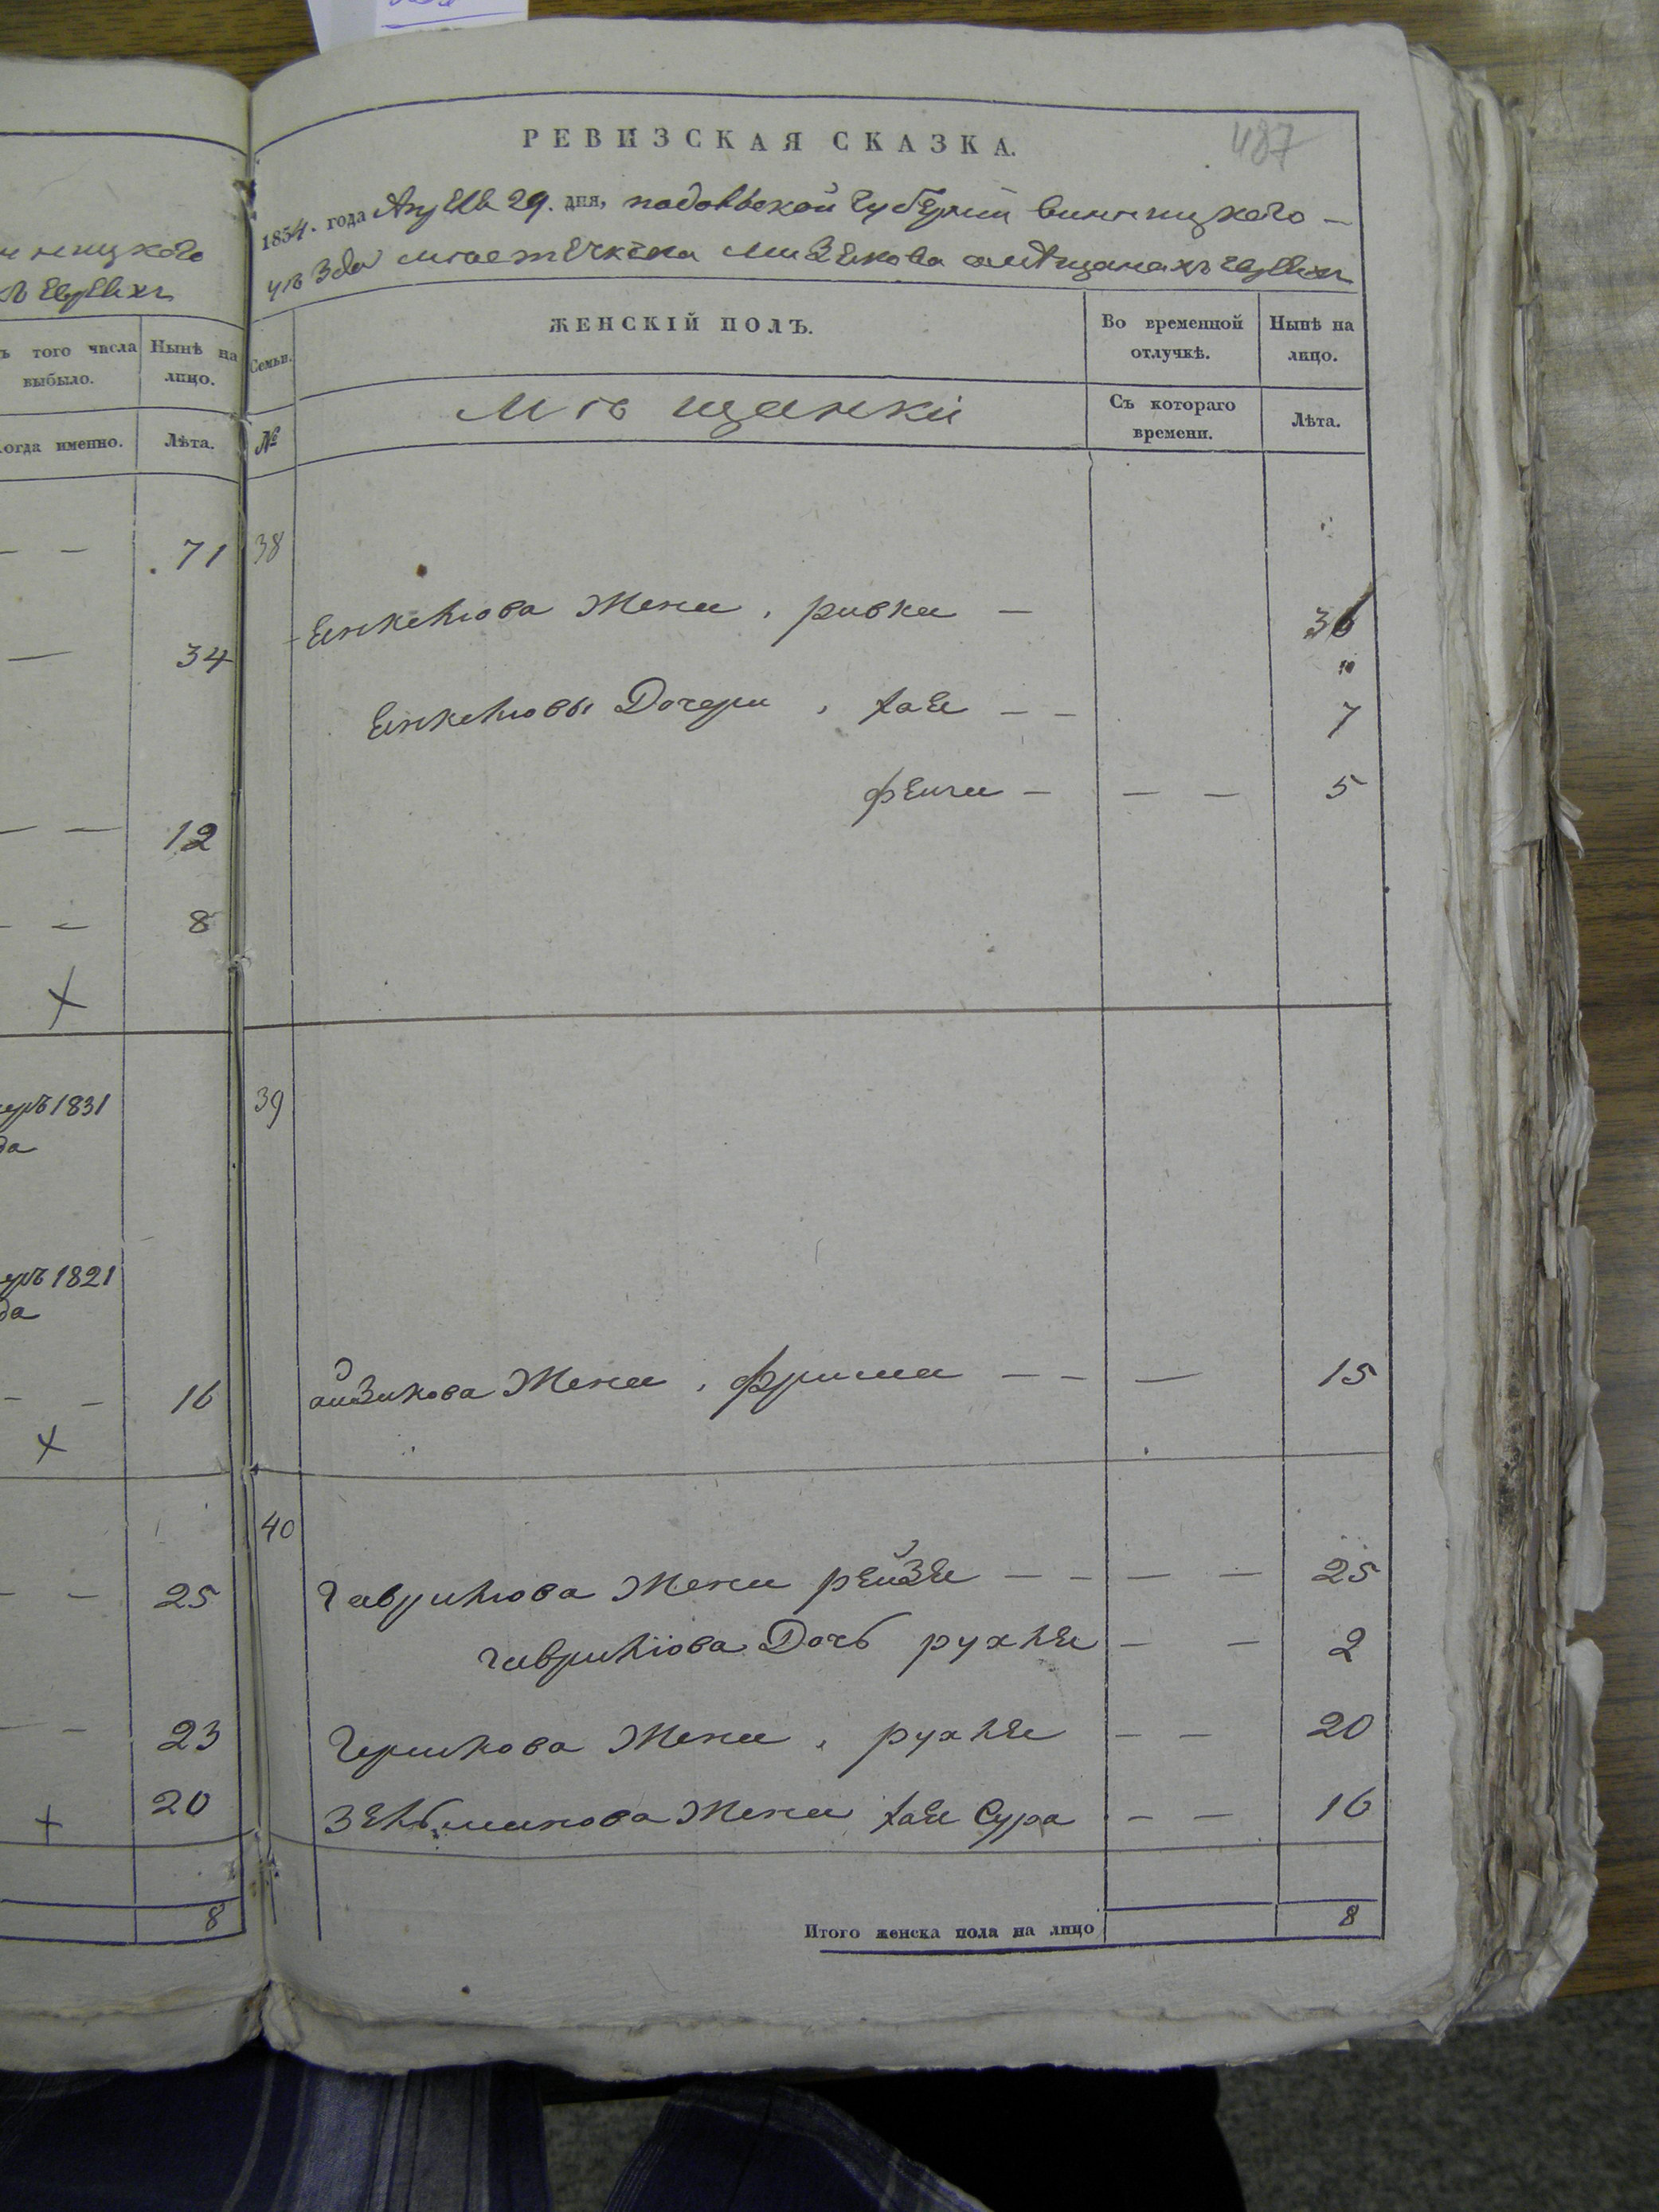 нницкого
ъ Евреяхъ
ъ того числа выбыло.
Нынѣ на лицо.
огда именно.
Лѣта.
71
34
12
8
1831
да
1821
да
16
25
23
20
8
487
РЕВИЗСКАЯ СКАЗКА.
1854. года Апреля 29. дня, подольской Губерніи винницкого
уѣзда местечка Мизякова о мѣщанахъ евреяхъ
Семьи.
ЖЕНСКІЙ ПОЛЪ.
Во временной отлучкѣ.
Нынѣ на лицо.
№
Мѣщанки
Съ котораго времени.
Лѣта.
38
Янкелюва Жена, ривка — 36
10
Янкелювы Дочери, хая — — 7
фейга — — — 5
39
айзикова Жена, фрима — — — 15
40
гаврилюва Жена рейзя — — — — 25
гаврилюва Дочь рухля — — 2
Гершкова Жена, рухля — — 20
Зельманова Жена хая Сура — — 16
Итого женска пола на лицо 8